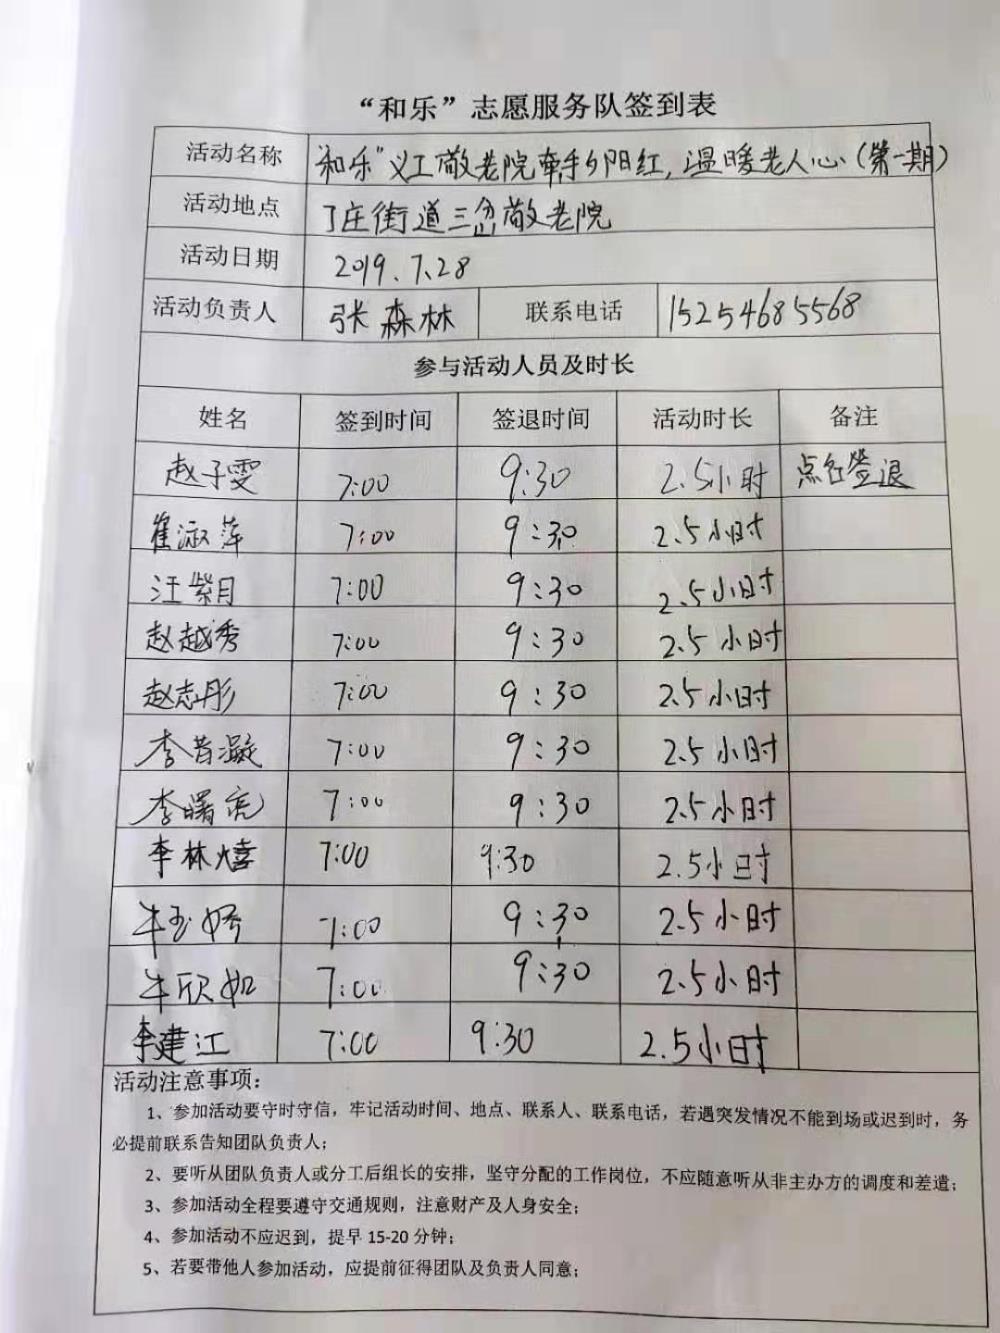 “和乐”志愿服务队签到表
活动名称 “和乐”义工敬老院牵手夕阳红,温暖老人心(第一期)
活动地点 丁庄街道三岔敬老院
活动日期 2019.7.28
活动负责人 张森林 联系电话 15254685568
参与活动人员及时长
姓名 签到时间 签退时间 活动时长 备注
赵子雯 7:00 9:30 2.5小时 点名签退
崔淑萍 7:00 9:30 2.5小时
汪紫月 7:00 9:30 2.5小时
赵越秀 7:00 9:30 2.5小时
赵志彤 7:00 9:30 2.5小时
李昔凝 7:00 9:30 2.5小时
李曙亮 7:00 9:30 2.5小时
李林熹 7:00 9:30 2.5小时
牛玉娉 7:00 9:30 2.5小时
牛欣如 7:00 9:30 2.5小时
李建江 7:00 9:30 2.5小时
活动注意事项：
1、参加活动要守时守信，牢记活动时间、地点、联系人、联系电话，若遇突发情况不能到场或迟到时，务
必提前联系告知团队负责人；
2、要听从团队负责人或分工后组长的安排，坚守分配的工作岗位，不应随意听从非主办方的调度和差遣；
3、参加活动全程要遵守交通规则，注意财产及人身安全；
4、参加活动不应迟到，提早 15-20 分钟；
5、若要带他人参加活动，应提前征得团队及负责人同意；